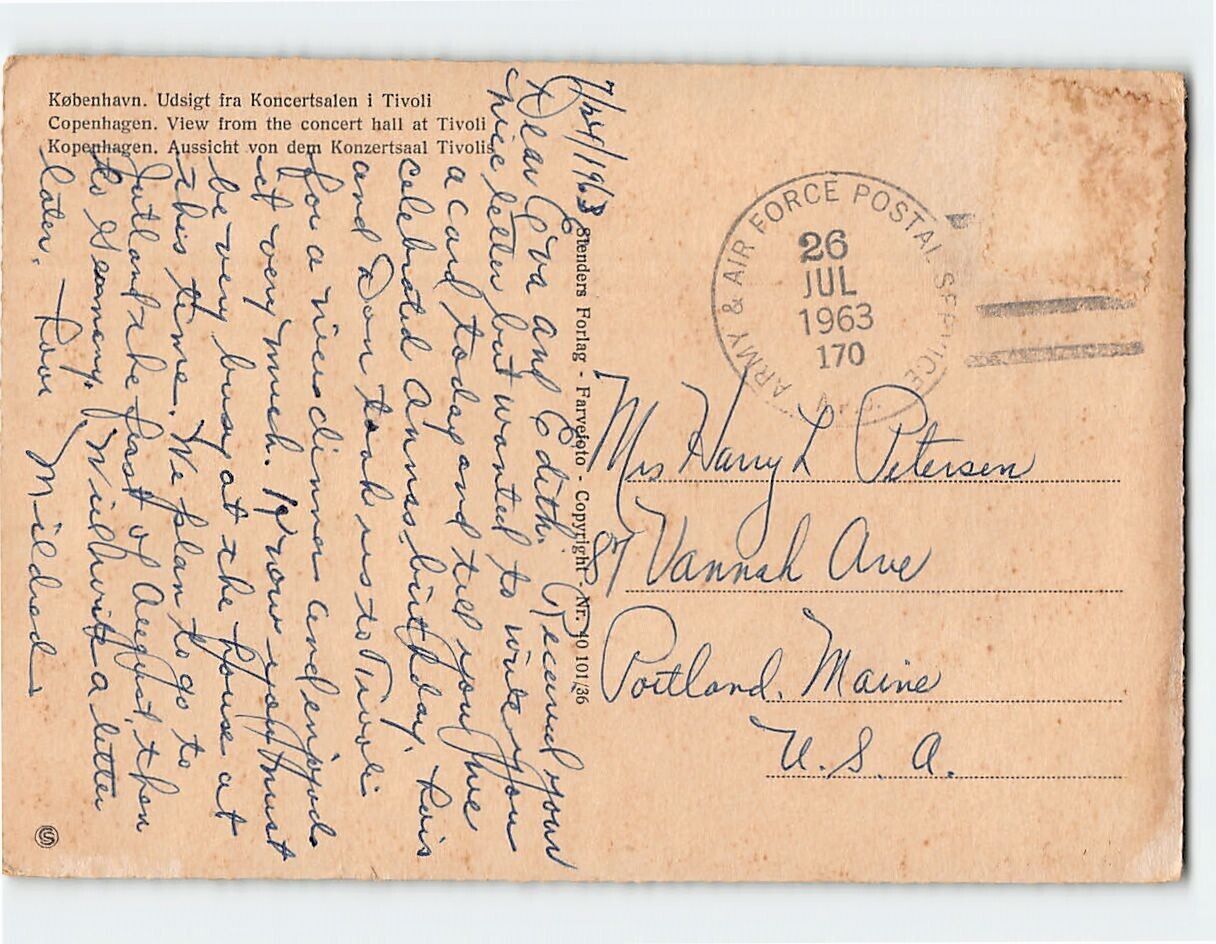 København. Udsigt fra Koncertsalen i Tivoli
Copenhagen. View from the concert hall at Tivoli
Kopenhagen. Aussicht von dem Konzertsaal Tivolis
7/24/1963
Dear Eva and Edith. Received your
nice letter but wanted to write you
a card today and tell you we
celebrated Annas birthday.
and Don took us to Tivoli
for a nice dinner and enjoyed
it very much. I know you must
be very busy at the house at
this time. We plan to go to
Jutland the first of August, then
to Germany. Will write a letter
later. Love Mildred.
Stenders Forlag - Farvefoto - Copyright - Nr. 40 101/36
ARMY & AIR FORCE POSTAL SERVICE
26
JUL
1963
170
Mrs Harry L Petersen
87 Vannah Ave
Portland, Maine
U. S. A.